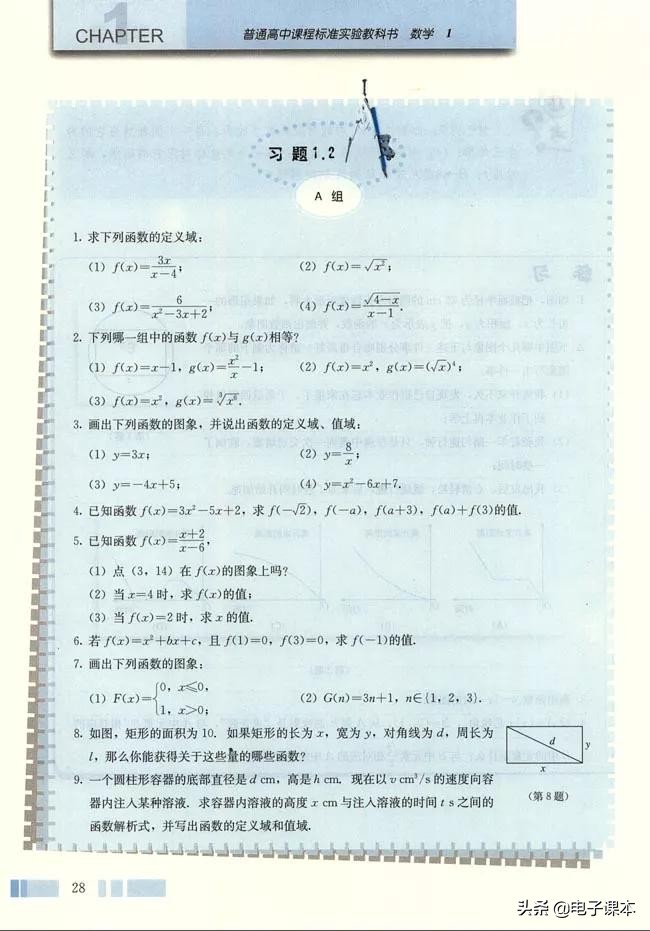 CHAPTER 1
普通高中课程标准实验教科书 数学 1
习题1.2
A 组
1. 求下列函数的定义域:
(1) f(x)=3x/(x-4); (2) f(x)=√(x²);
(3) f(x)=6/(x²-3x+2); (4) f(x)=√(4-x)/(x-1).
2. 下列哪一组中的函数 f(x)与 g(x)相等?
(1) f(x)=x-1, g(x)=x²/x-1; (2) f(x)=x², g(x)=(√x)⁴;
(3) f(x)=x², g(x)=∛(x⁶).
3. 画出下列函数的图象,并说出函数的定义域、值域:
(1) y=3x; (2) y=8/x;
(3) y=-4x+5; (4) y=x²-6x+7.
4. 已知函数 f(x)=3x²-5x+2, 求 f(-√2), f(-a), f(a+3), f(a)+f(3)的值.
5. 已知函数 f(x)=(x+2)/(x-6),
(1) 点 (3, 14) 在 f(x)的图象上吗?
(2) 当 x=4 时, 求 f(x)的值;
(3) 当 f(x)=2 时, 求 x 的值.
6. 若 f(x)=x²+bx+c, 且 f(1)=0, f(3)=0, 求 f(-1)的值.
7. 画出下列函数的图象:
(1) F(x)={0, x≤0, 1, x>0; (2) G(n)=3n+1, n∈{1, 2, 3}.
8. 如图, 矩形的面积为 10. 如果矩形的长为 x, 宽为 y, 对角线为 d, 周长为
l, 那么你能获得关于这些量的哪些函数?
d
y
x
(第 8 题)
9. 一个圆柱形容器的底部直径是 d cm, 高是 h cm. 现在以 v cm³/s 的速度向容
器内注入某种溶液. 求容器内溶液的高度 x cm 与注入溶液的时间 t s 之间的
函数解析式, 并写出函数的定义域和值域.
28
头条 @电子课本